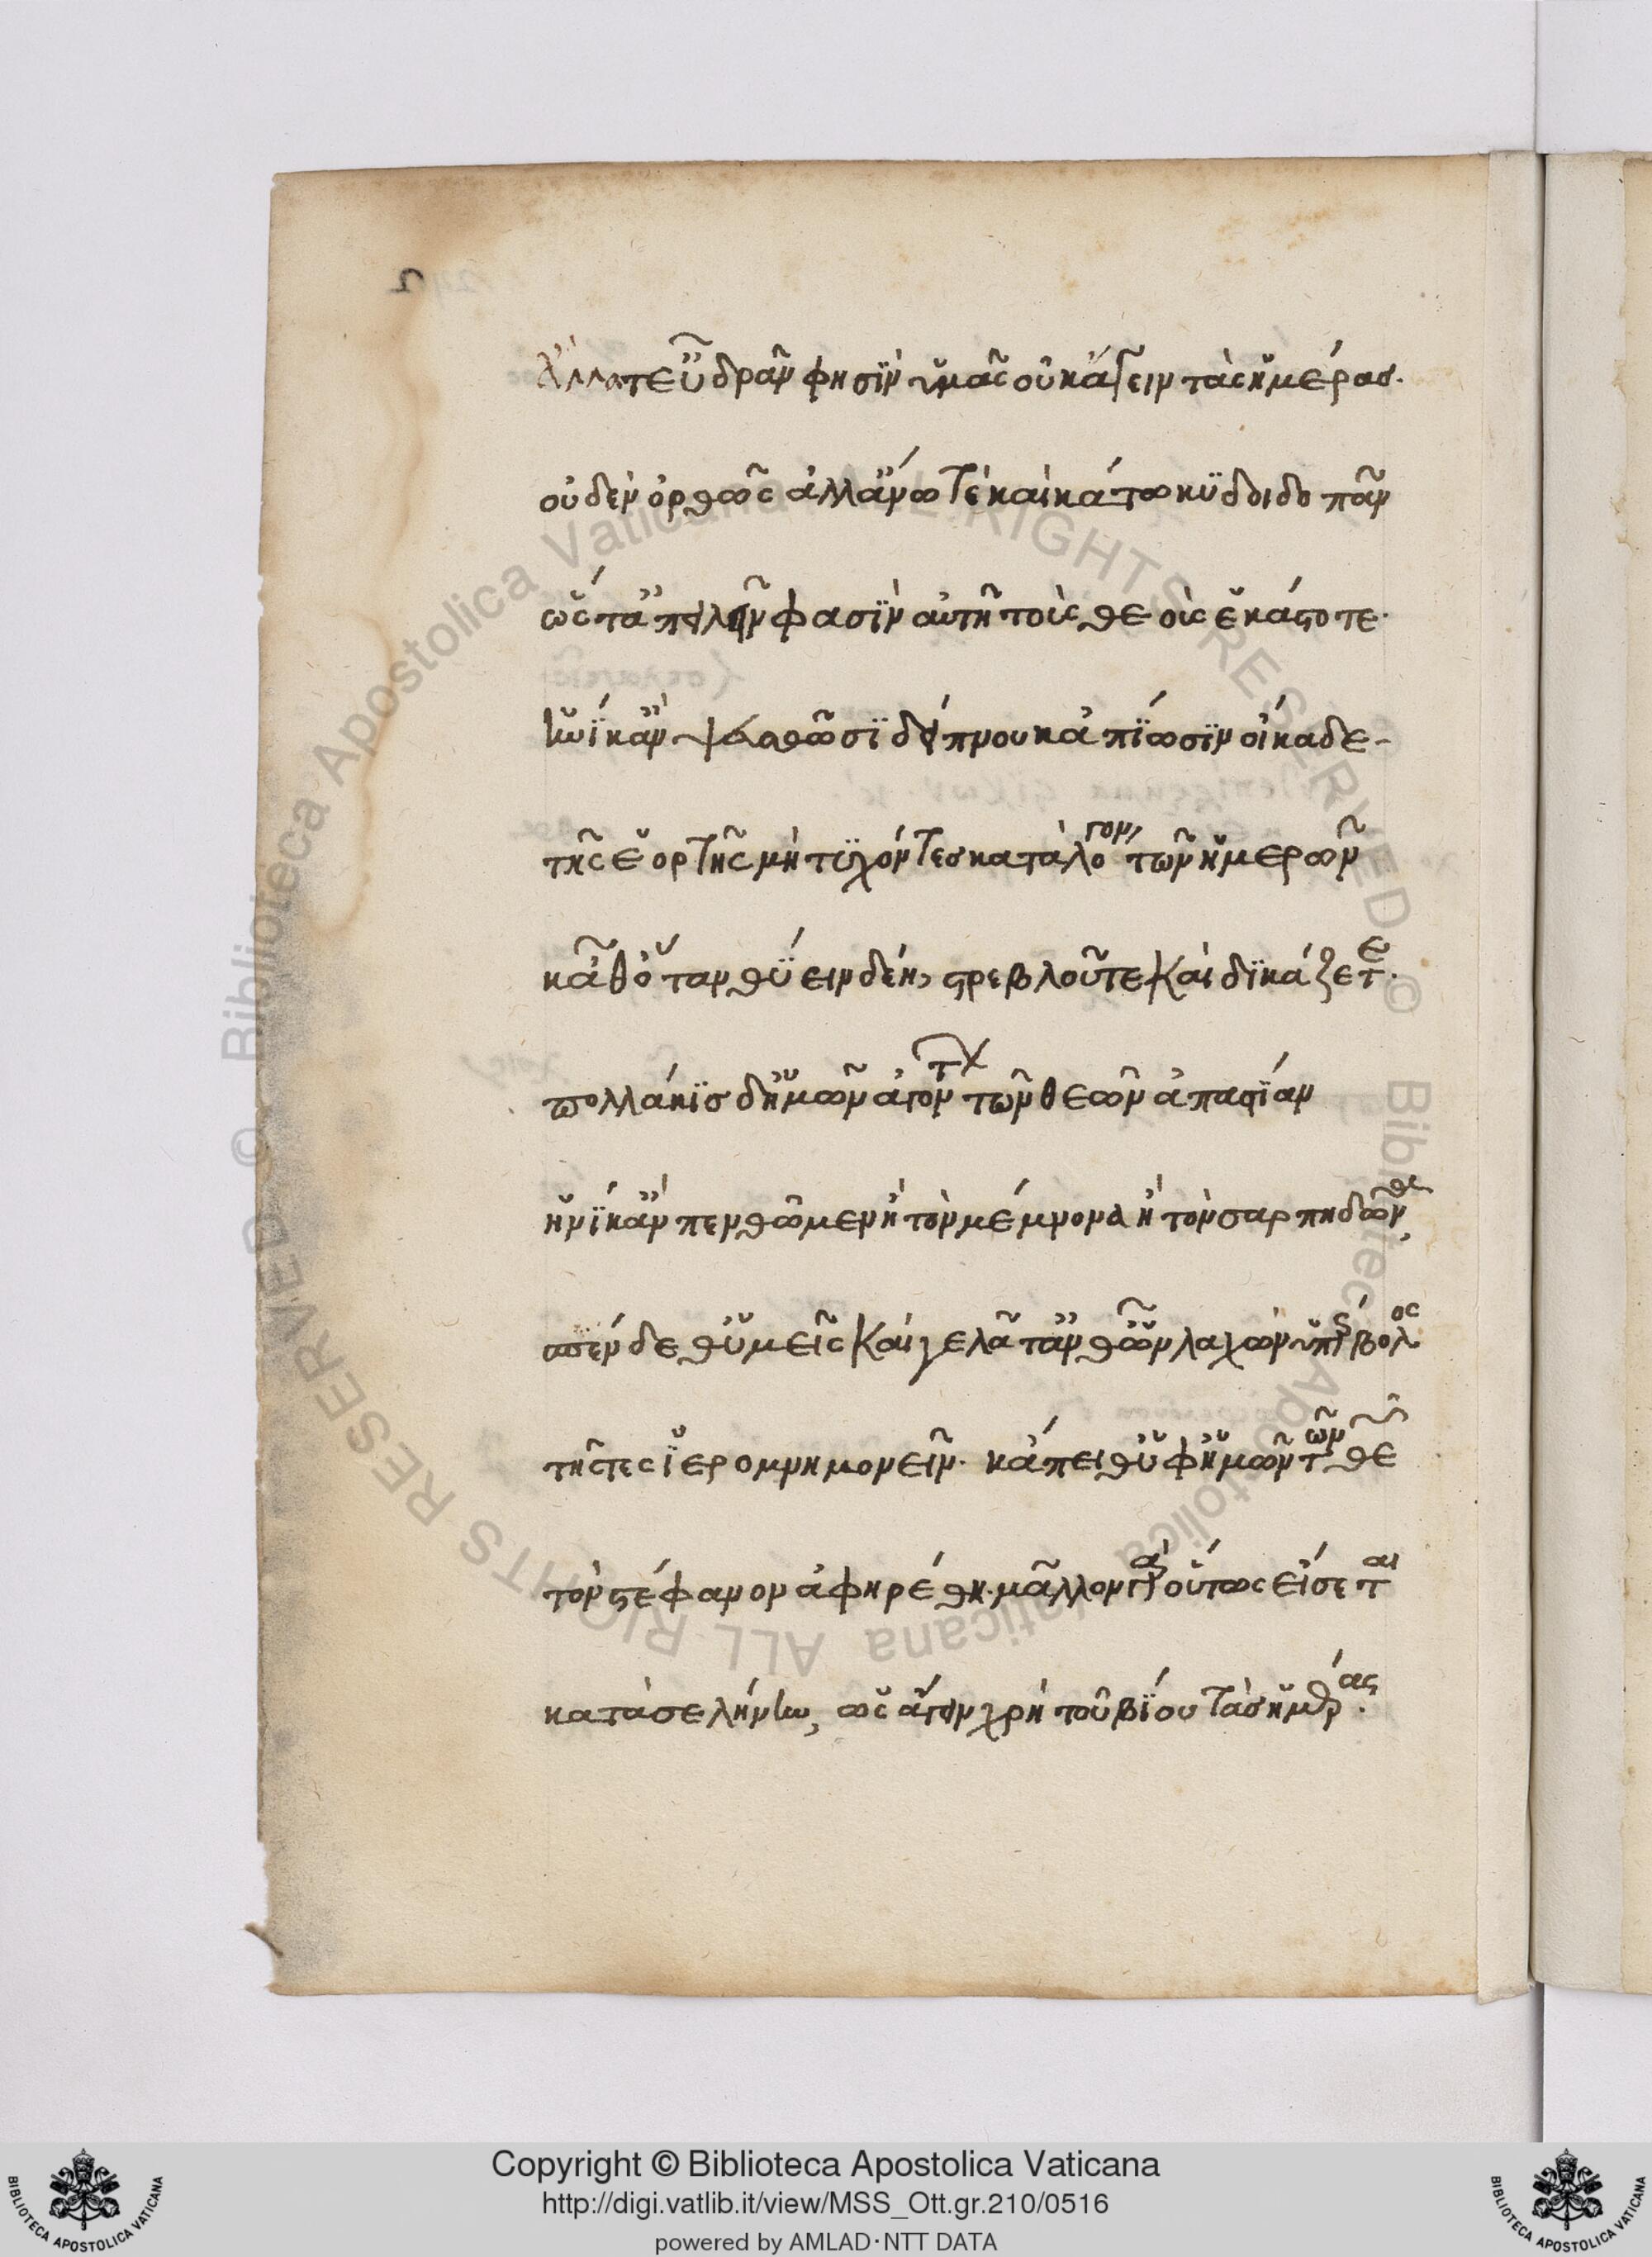 ἄλλα τ' εὖ δρᾶν φησὶν ὑμᾶς οὐκ ἄγειν τὰς ἡμέρας.
οὐδὲν ὀρθῶς ἀλλ' ἄνω τὲ καὶ κάτω κυδοιδοπᾶν
ὥς τ' ἀπειλεῖν φασὶν αὐτῆ τοὺς θεοὺς ἑκάστοτε.
ἡνίκ' ἂν ψευσθῶσι δείπνου κἀπίωσιν οἴκαδε
τῆς ἑορτῆς μὴ τυχόντες κατὰ λόγον τῶν ἡμερῶν
κᾆθ' ὅταν θύειν δέη, στρεβλοῦτε καὶ δικάζετε.
πολλάκις δ' ἡμῶν ἀγόντων τῶν θεῶν ἀπαστίαν
ἡνίκ' ἂν πενθῶμεν ἢ τὸν μέμνονα ἢ τὸν σαρπηδόνα,
σπένδεθ' ὑμεῖς καὶ γελᾶτ' ἀνθ' ὧν λαχὼν ὑπέρβολος
τῆτες ἱερομνημονεῖν. κἄπειθ' ὑφ' ἡμῶν τῶν θεῶν
τὸν στέφανον ἀφηρέθη. μᾶλλον γὰρ οὕτως εἴσεται
κατὰ σελήνην, ὡς ἄγειν χρὴ τοῦ βίου τὰς ἡμέρας.
© Biblioteca Apostolica Vaticana ALL RIGHTS RESERVED
Copyright © Biblioteca Apostolica Vaticana
http://digi.vatlib.it/view/MSS_Ott.gr.210/0516
powered by AMLAD·NTT DATA
BIBLIOTECA APOSTOLICA VATICANA
BIBLIOTECA APOSTOLICA VATICANA